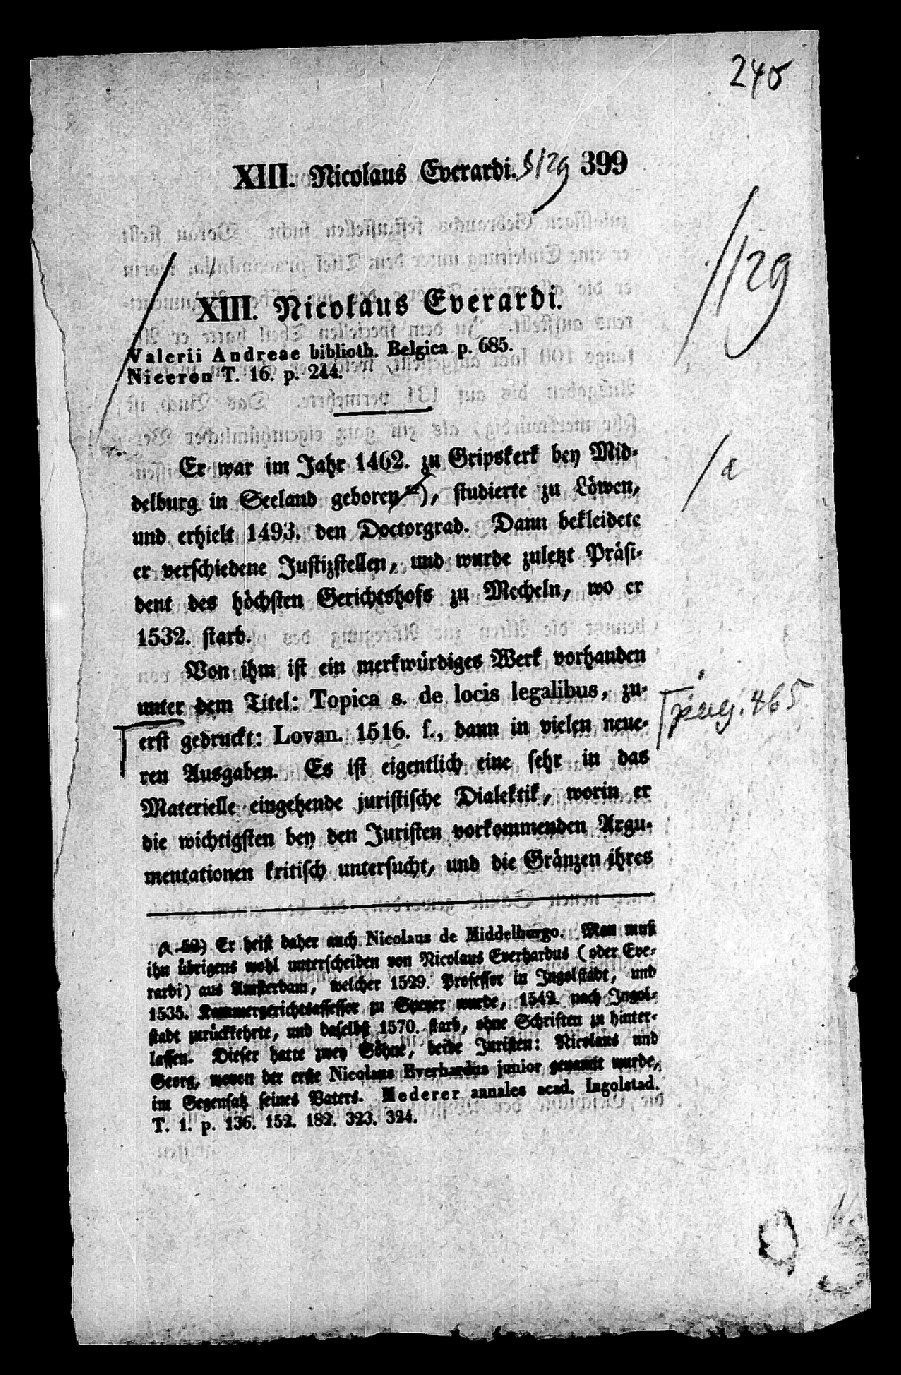 240
XIII. Nicolaus Everardi. § 129 399
129
XIII. Nicolaus Everardi.
Valerii Andreae biblioth. Belgica p. 685.
Niceron T. 16. p. 244.
Er war im Jahr 1462. zu Gripskerk bey Mid-
delburg in Seeland geboren), studierte zu Löwen, a
und erhielt 1493. den Doctorgrad. Dann bekleidete
er verschiedene Justizstellen, und wurde zuletzt Präsi-
dent des höchsten Gerichtshofs zu Mecheln, wo er
1532. starb.
Von ihm ist ein merkwürdiges Werk vorhanden
unter dem Titel: Topica s. de locis legalibus, zu- pag. 465
erst gedruckt: Lovan. 1516. f., dann in vielen neue-
ren Ausgaben. Es ist eigentlich eine sehr in das
Materielle eingehende juristische Dialektik, worin er
die wichtigsten bey den Juristen vorkommenden Argu-
mentationen kritisch untersucht, und die Gränzen ihres
Er heist daher auch Nicolaus de Middelburgo. Man muß
ihn übrigens wohl unterscheiden von Nicolaus Everhardus (oder Eve-
rardi) aus Amsterdam, welcher 1529. Professor in Ingolstadt, und
1535. Kammergerichtsassessor zu Speyer wurde, 1542. nach Ingol-
stadt zurückkehrte, und daselbst 1570. starb, ohne Schriften zu hinter-
lassen. Dieser hatte zwey Söhne, beide Juristen: Nicolaus und
Georg, wovon der erste Nicolaus Everhardus junior genannt wurde,
im Gegensatz seines Vaters. Mederer annales acad. Ingolstad.
T. 1. p. 136. 152. 182. 323. 324.